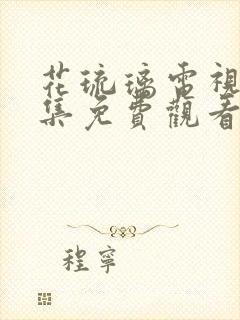 花琉璃電視
集免費觀看
程寧